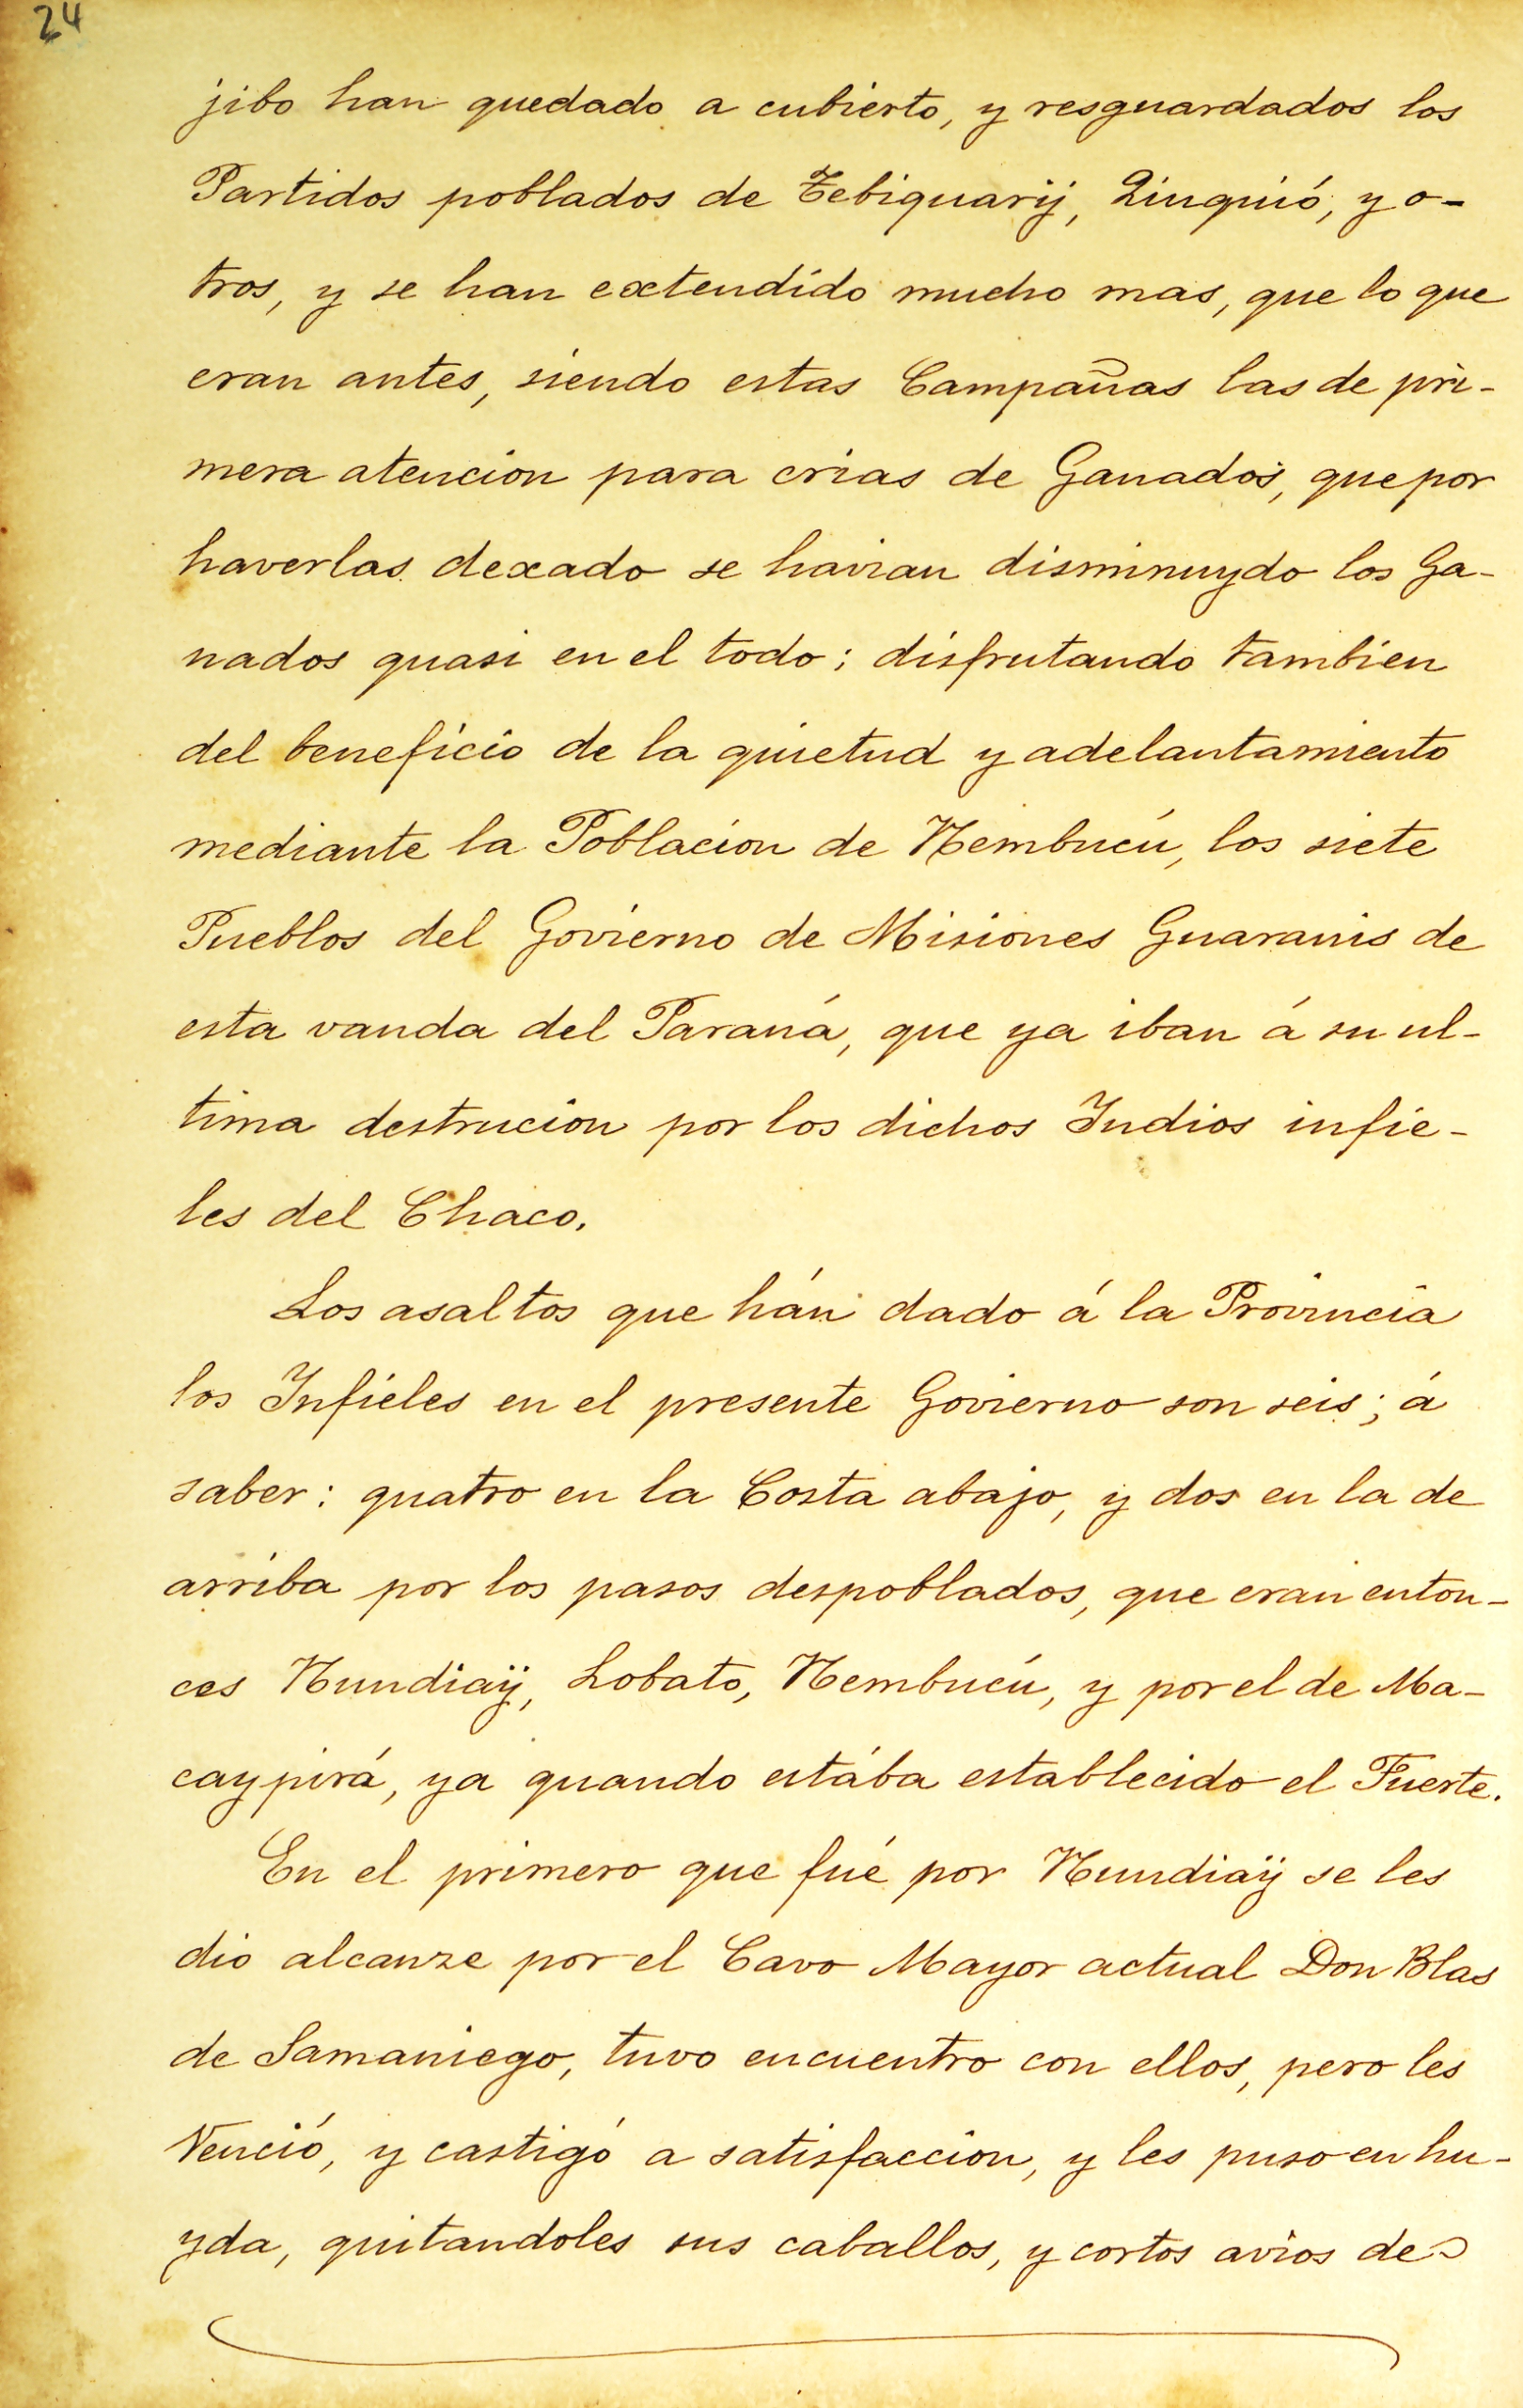 24
jibo han quedado a cubierto, y resguardados los
Partidos poblados de Tebiquarÿ, Quiquió, y o-
tros, y se han extendido mucho mas, que lo que
eran antes, siendo estas Campañas las de pri-
mera atencion para crias de Ganados, que por
haverlas dexado se havian disminuydo los Ga-
nados quasi en el todo; disfrutando tambien
del beneficio de la quietud y adelantamiento
mediante la Poblacion de Ñembucú, los siete
Pueblos del Govierno de Misiones Guaranis de
esta vanda del Paraná, que ya iban á su ul-
tima destrucion por los dichos Indios infie-
les del Chaco.
Los asaltos que hán dado á la Provincia
los Infieles en el presente Govierno son seis; á
saber: quatro en la Costa abajo, y dos en la de
arriba por los pasos despoblados, que eran enton-
ces Ñundiaÿ, Lobato, Ñembucú, y por el de Ma-
caypirá, ya quando estába establecido el Fuerte.
En el primero que fué por Ñundiaÿ se les
dio alcanze por el Cavo Mayor actual Don Blas
de Samaniego, tuvo encuentro con ellos, pero les
Venció, y castigó a satisfaccion, y les puso en hu-
yda, quitandoles sus caballos, y cortos avios de